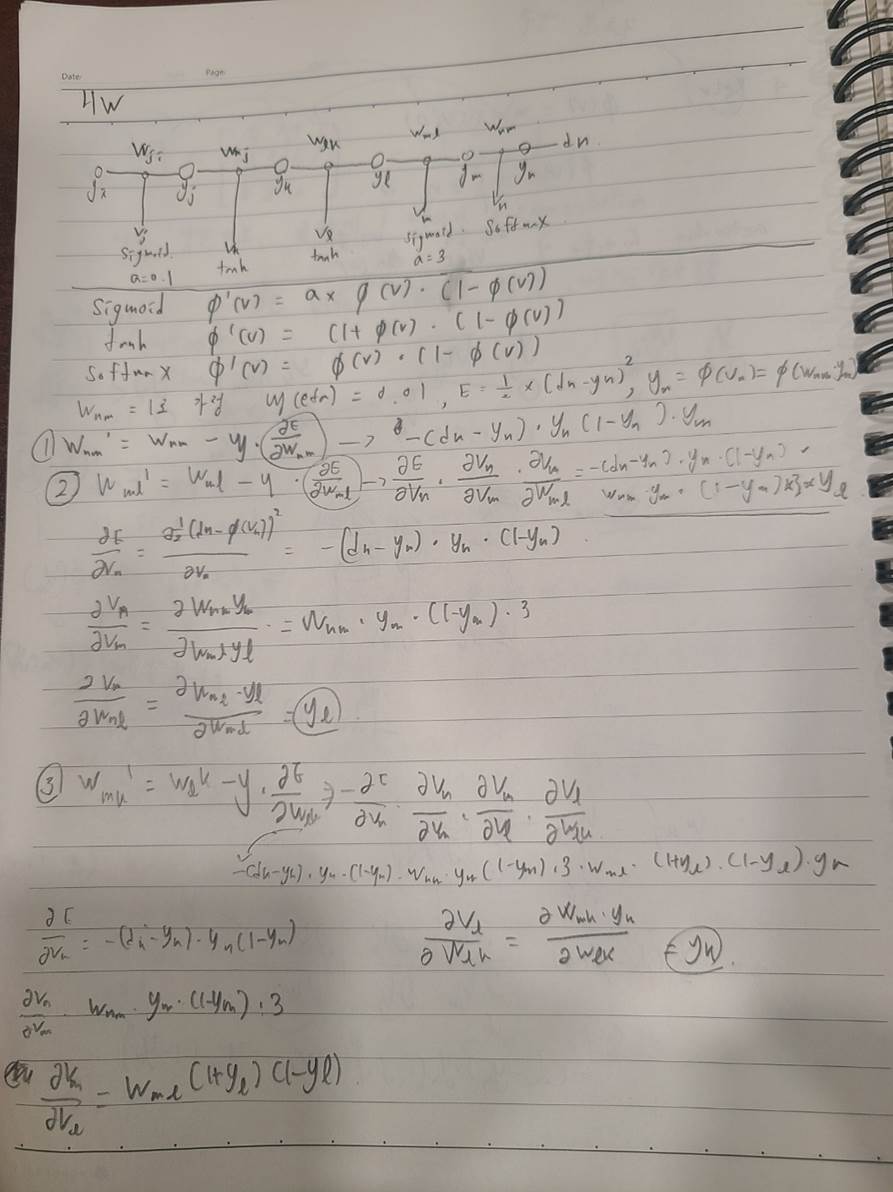 Date: Page:
4W
Wji Wkj Wlk Wml Wnm
yi yj yk yl ym yn dn
Vj Vk Vl Vm Vn
sigmoid. a=0.1 tanh tanh sigmoid. a=3 softmax
sigmoid φ'(v) = a× φ(v)·(1-φ(v))
tanh φ'(v) = (1+φ(v)·(1-φ(v))
softmax φ'(v) = φ(v)·(1-φ(v))
Wnm = 1로 가정 η(eta) = 0.01, E = ½ × (dn-yn)², yn = φ(Vn) = φ(Wnm·ym)
① Wnm' = Wnm - η·∂E/∂Wnm → -(dn-yn)·yn(1-yn)·ym
② Wml' = Wml - η·∂E/∂Wml → ∂E/∂Vn · ∂Vn/∂Vm · ∂Vm/∂Wml = -(dn-yn)·yn·(1-yn)·
Wnm·ym·(1-ym)×3×yl
∂E/∂Vn = ∂½(dn-φ(Vn))²/∂Vn = -(dn-yn)·yn·(1-yn)
∂Vn/∂Vm = ∂Wnm ym/∂Wml yl = Wnm·ym·(1-ym)·3
∂Vm/∂Wml = ∂Wml·yl/∂Wml = yl
③ Wmk' = Wlk - η·∂E/∂Wlk → -∂E/∂Vn · ∂Vn/∂Vm · ∂Vm/∂Vl · ∂Vl/∂Wlk
-(dn-yn)·yn·(1-yn)·Wnm·ym(1-ym)·3·Wml·(1+yl)·(1-yl)·yk
∂E/∂Vn = -(dn-yn)·yn(1-yn) ∂Vl/∂Wlk = ∂Wmk·yk/∂Wlk = yk.
∂Vn/∂Vm · Wnm·ym·(1-ym)·3
∂Vm/∂Vl = Wml(1+yl)(1-yl)